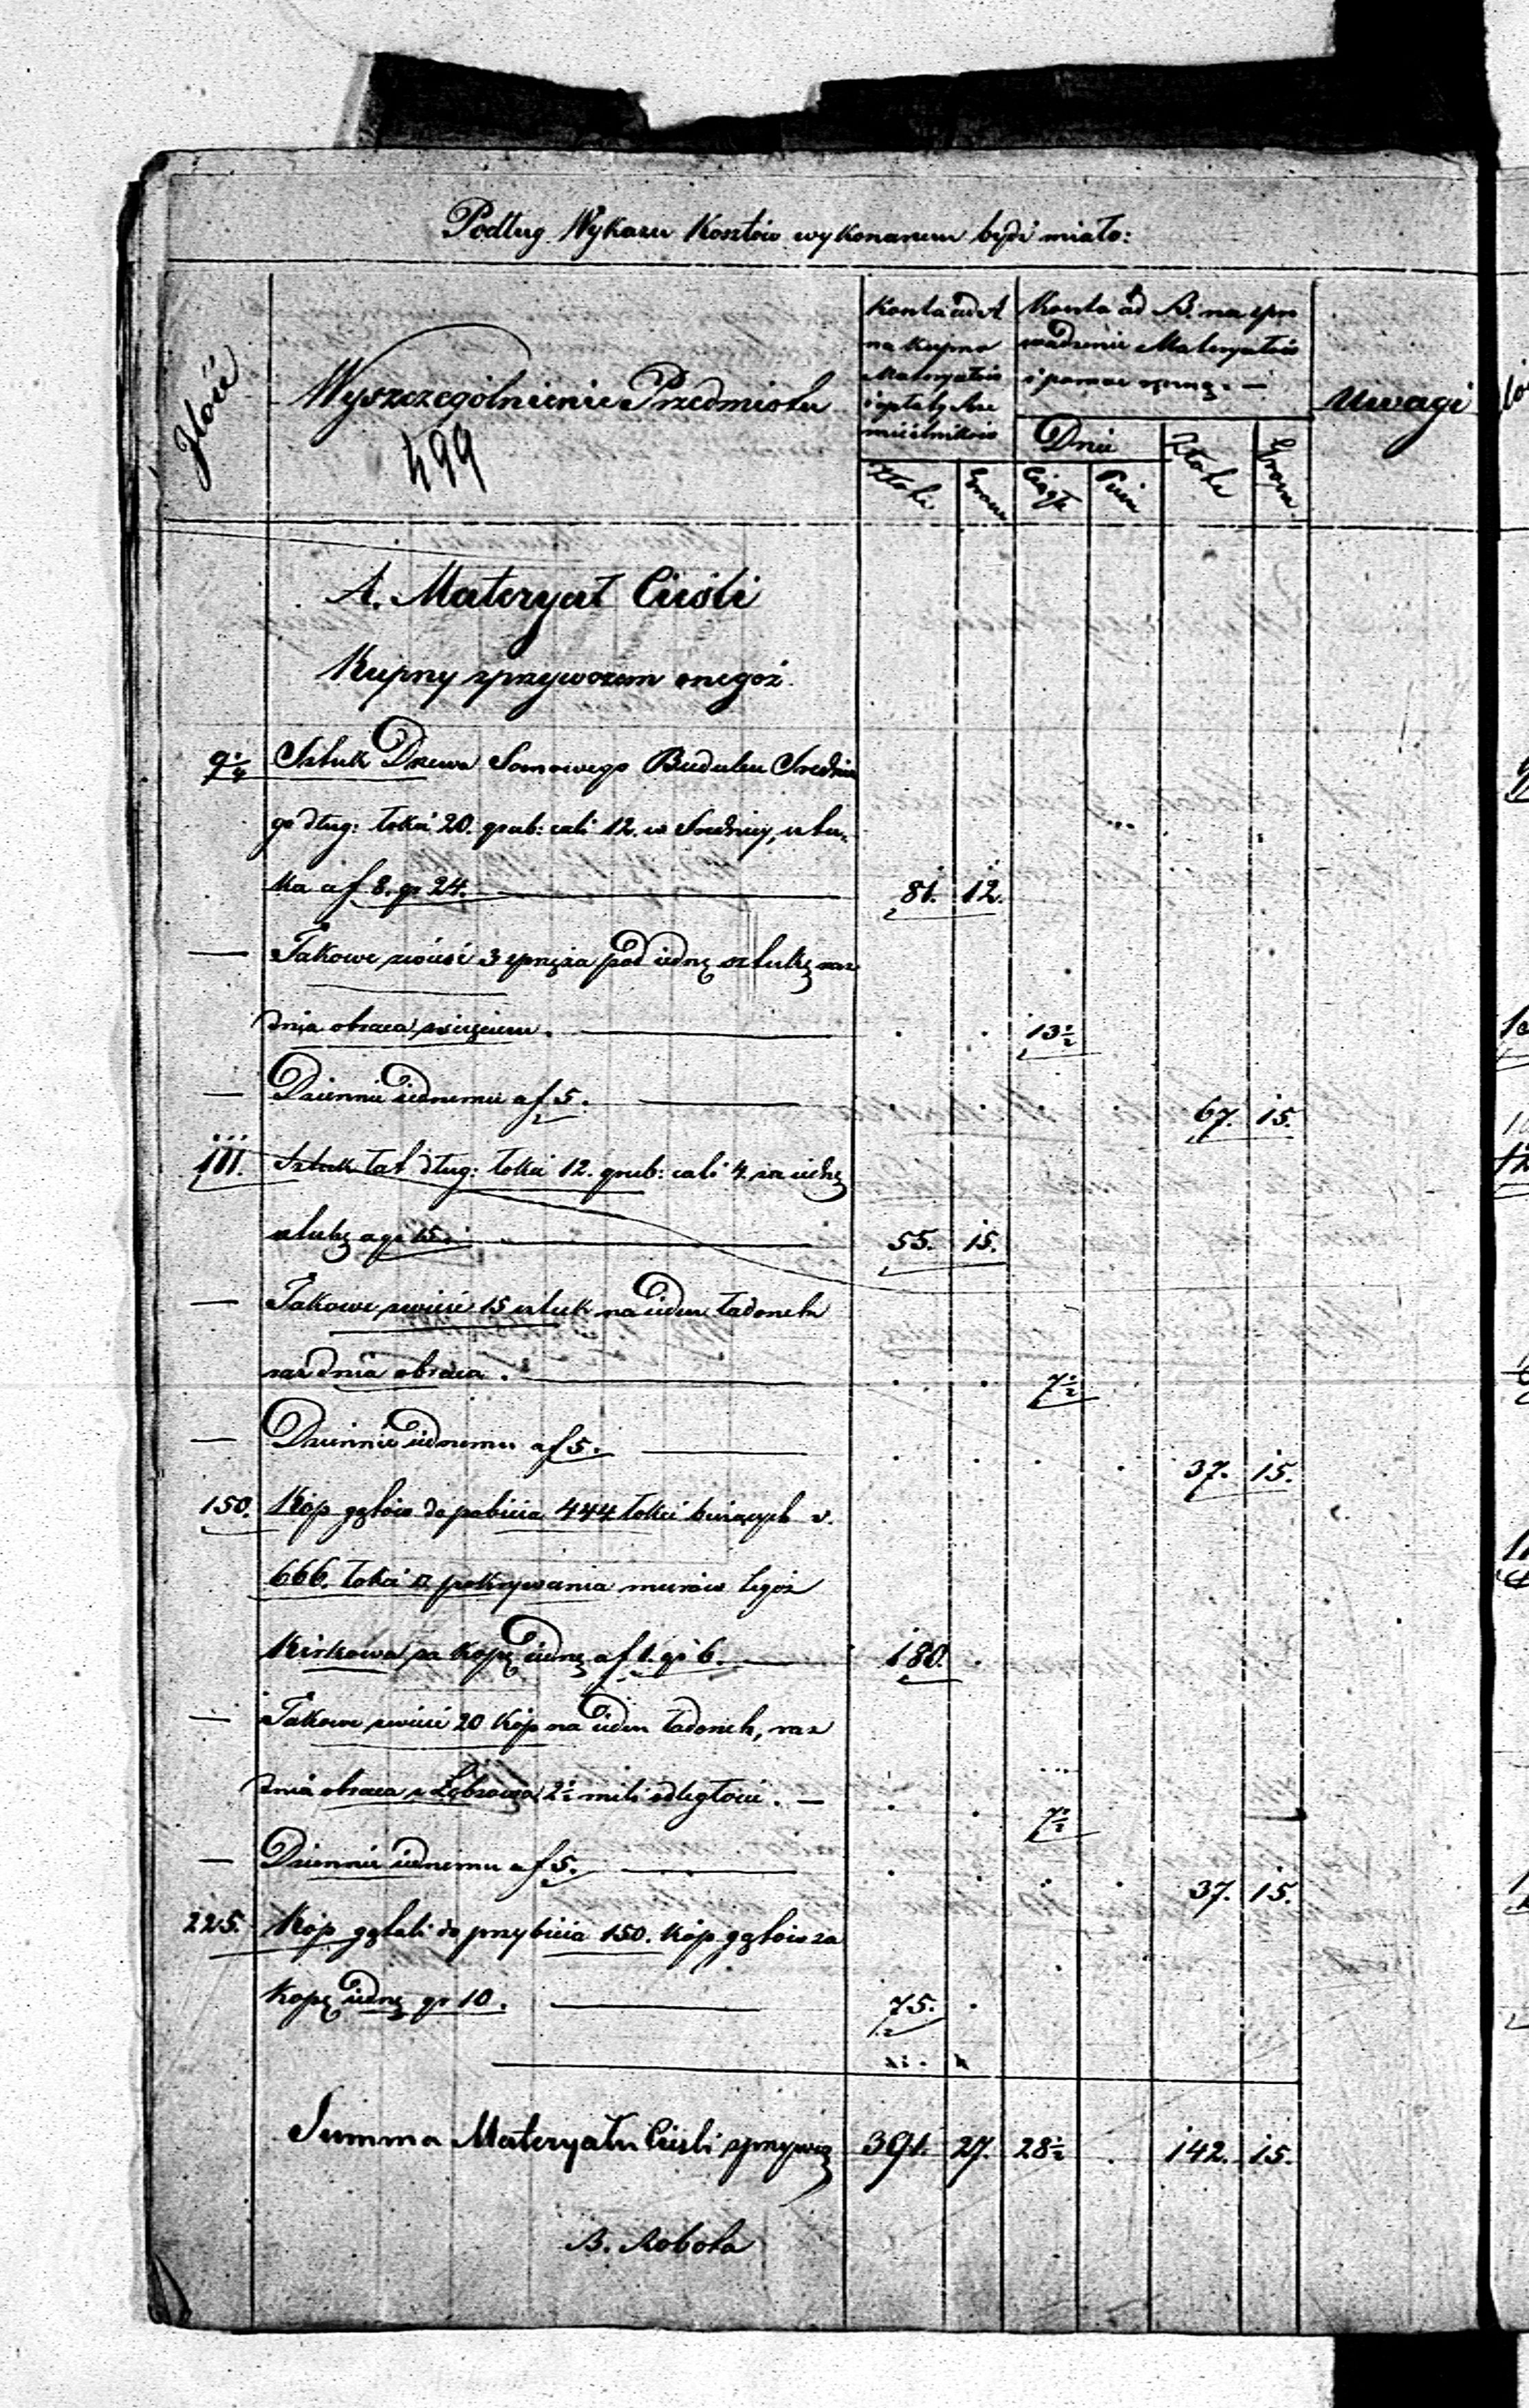 Podług Wykazu Kosztów wykonanem bydź miało:
Ilość
Wyszczególnienie Przedmiotu
499
Koszta ad A
na kupno
Materyałów
i opłatę Rze
mieślników
Koszta ad B. na spro
wadzenie Materyałów
i pomoc ręczną. —
Dnie
Uwagi
Złote
Grosze
Ciągłe
Piesze
Złote
Grosze
A. Materyał Cieśli
Kupny z przywozem onegoż
9 1/4 Sztuk Drzewa Sosnowego Budulcu Średnie
go dług: łokci 20. grub: cali 12. w Średnicy, sztu-
ka a f 8. gr 24. 81. 12.
— Takowe zwieść 3 sprzęża pod jednę sztukę raz
dnia obraca . 13 1/2
— Dziennie jednemu a f 5. 67. 15.
111. Sztuk łat dług: łokci 12. grub: cali 4. za jednę
sztukę a gr 15. 55. 15.
— Takowe zwieść 15 sztuk na jeden ładunek
raz dnia obraca. 7 1/2
— Dziennie jednemu a f 5. 37. 15.
150. Kóp gątów do pobicia 444 łokci bieżących v.
666. łokci □ pokrywania murów tegoż
za kopę jednę a f 1. gr 6. 180.
— Takowe zwieść 20 kóp na jeden ładunek, raz
dnia obraca z 2 1/2 mili odległości. — 7 1/2
— Dziennie jednemu a f 5. 37. 15.
225. Kóp gątali do przybicia 150. kóp gątów za
kopę jednę gr 10. 75.
Summa Materyału Cieśli z przywozę 391. 27. 28 1/2 142. 15.
B. Robota